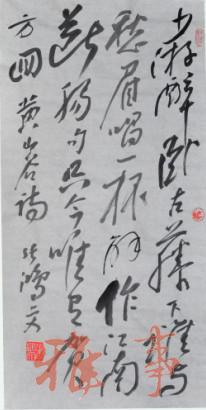 少游醉卧古藤下谁与
愁眉唱一杯解作江南
断肠句只今唯有贺
方回 黄山谷诗